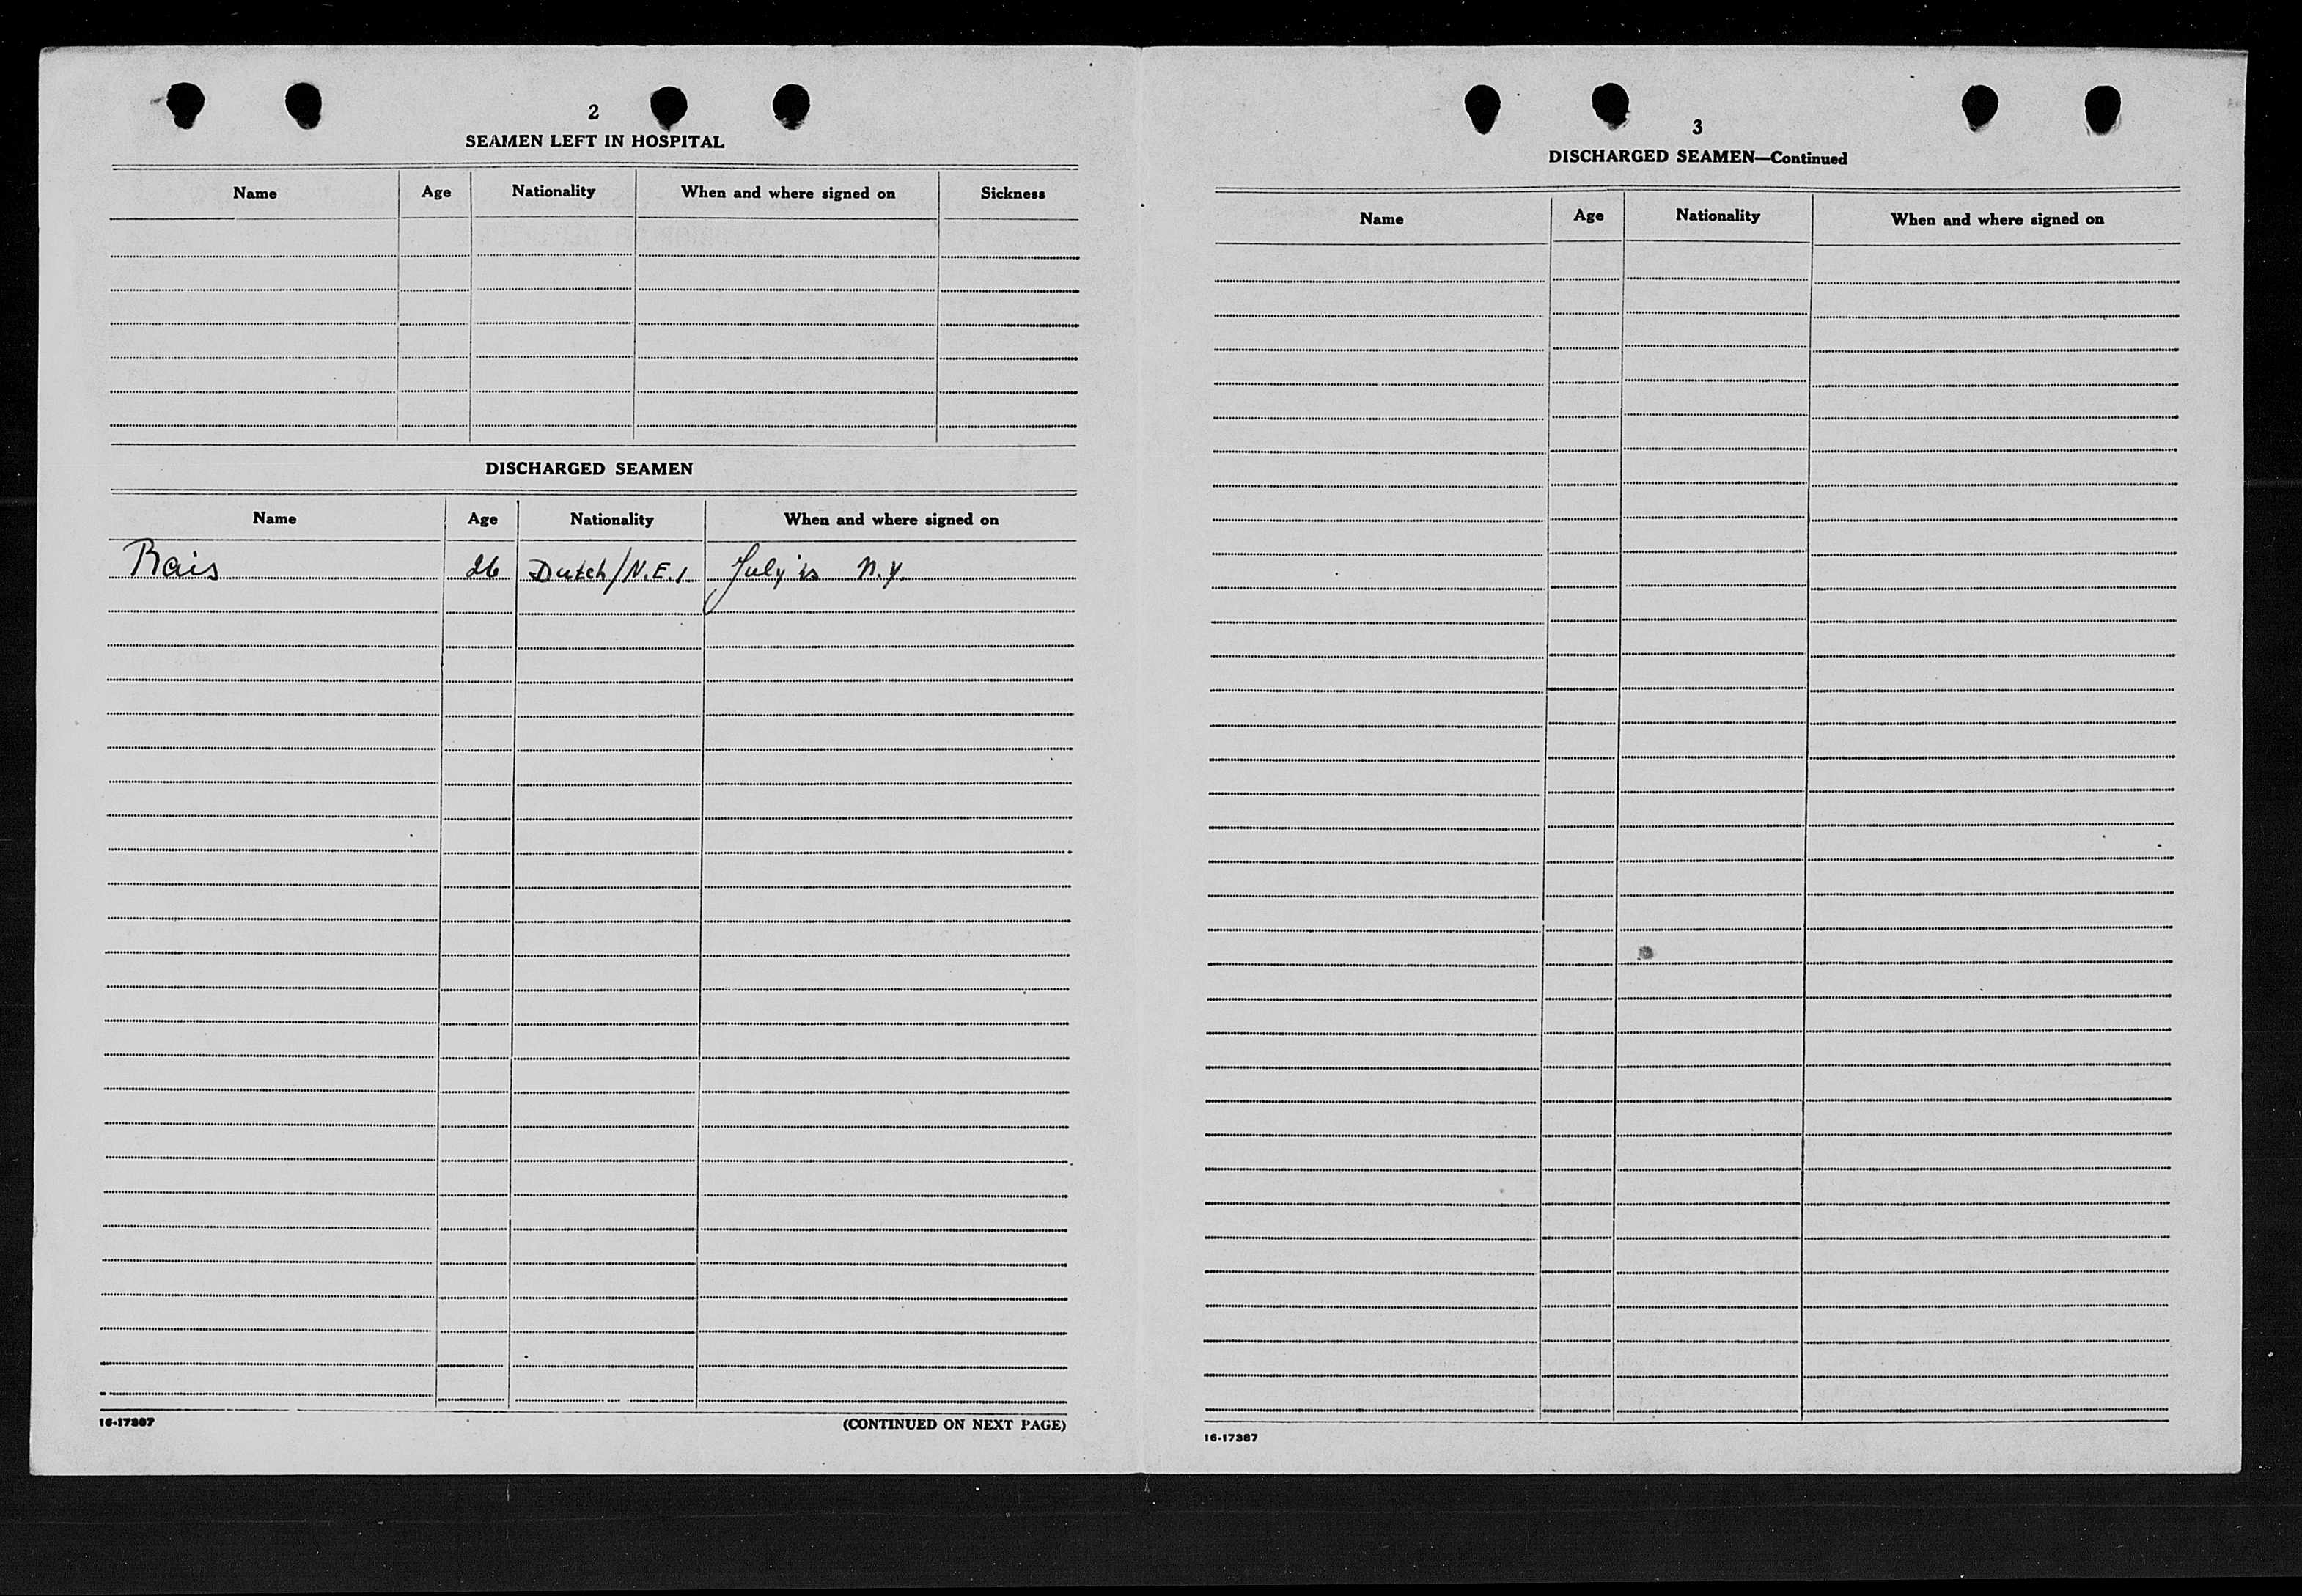 2
SEAMEN LEFT IN HOSPITAL
Name Age Nationality When and where signed on Sickness
DISCHARGED SEAMEN
Name Age Nationality When and where signed on
Rais 26 Dutch/N.E.I. July N.Y.
16-17387 (CONTINUED ON NEXT PAGE)
3
DISCHARGED SEAMEN—Continued
Name Age Nationality When and where signed on
16-17387